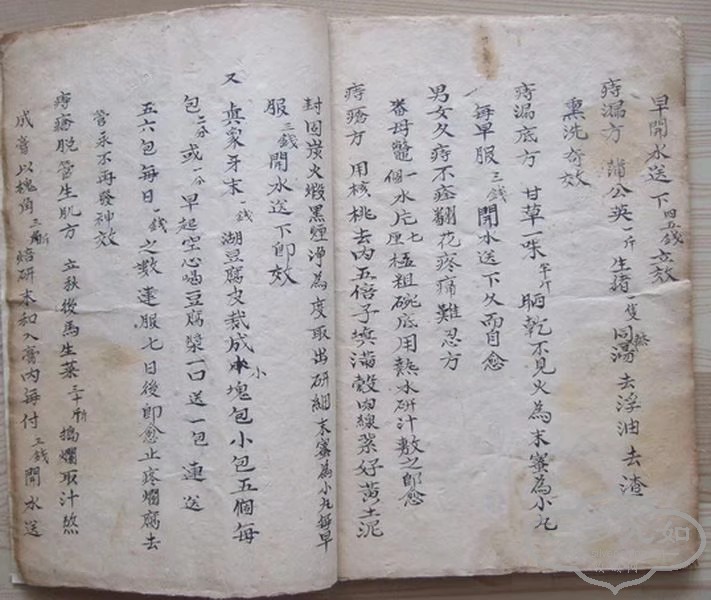 早開水送下四五錢立效
痔漏方 蒲公英一斤 生猪一隻 同湯熬去浮油去渣
熏洗奇效
痔漏底方 甘草一味半斤晒乾不見火為末蜜為小丸
每早服三錢開水送下久而自愈
男女久痔不痊翻花疼痛難忍方
番母鱉一個水片七厘極粗碗底用熱水研汁敷之即愈
痔瘡方 用核桃去肉五倍子填滿殼肉線紮好黃土泥
封固炭火煅黑煙淨為度取出研細末蜜為小丸每早
服三錢開水送下即效
又 真象牙末一錢 湖豆腐皮裁成小塊包小包五個每
包二分或一分早起空心喝豆腐漿一口送一包連送
五六包每日一錢之數連服七日後即愈止疼爛腐去
管永不再發神效
痔瘡脫管生肌方 立秋後馬生菜三十斤搗爛取汁熬
成膏以槐角三斤焙研末和入膏內每付三錢開水送